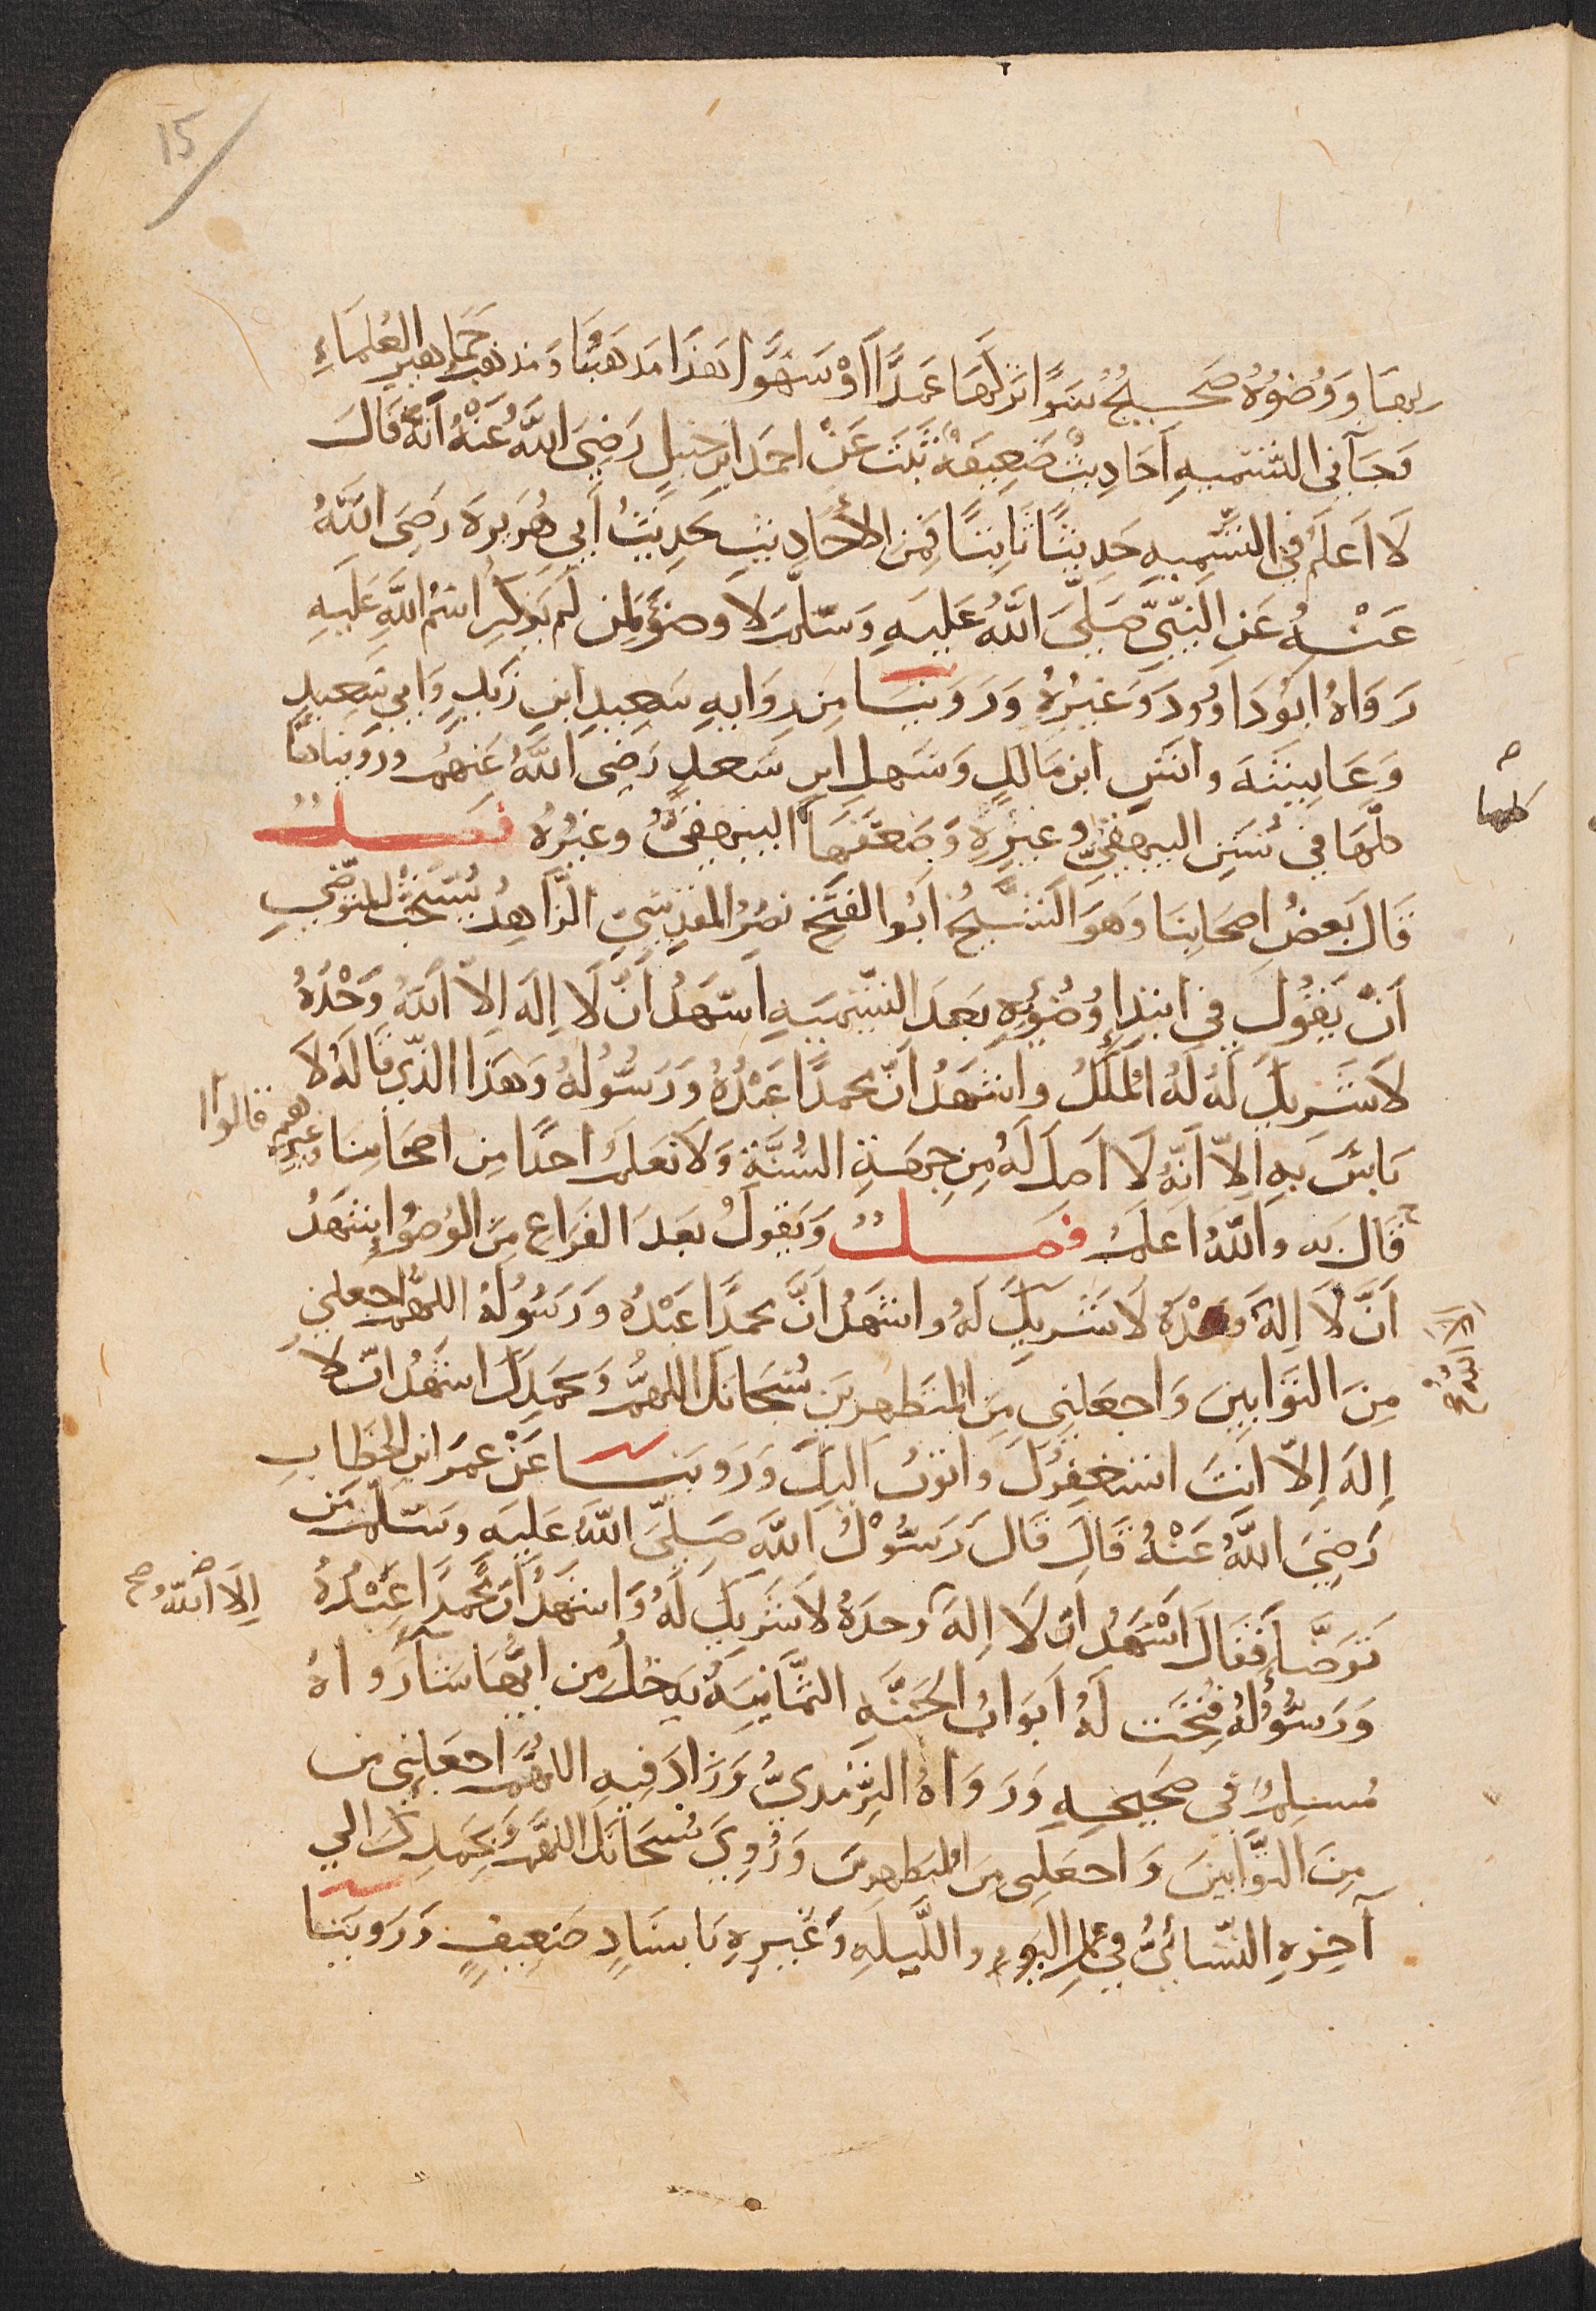 15
بها ووضوءه صحيح سوا تركها عمدا او سهوا هذا مذهبنا ومذهب جماهير العلماء
وجآ في التسميه احاديث ضعيفة ثبت عن احمد ابن حنبل رضي الله عنه انه قال
لا اعلم في التسميه حديثا ثابتا فمن الأحاديث حديث أبي هريرة رضي الله
عنه عن النبي صلى الله عليه وسلم لا وضؤ لمن لم يذكر اسم الله عليه
رواه ابو داود وغيره وروينا من روايه سعيد ابن زيد وابي سعيد
وعايشه وانس ابن مالك وسهل ابن سعد رضي الله عنهم ورويناها
كلها في سنن البيهقي وغيره وضعفها البيهقي وغيره فصل
كلها
قال بعض اصحابنا وهو الشيخ ابو الفتح نصر المقدسي الزاهد يستحب للمتوضي
أن يقول في ابتداء وضوئه بعد التسميه اشهد ان لا اله الا الله وحده
لا شريك له له الملك واشهد ان محمدا عبده ورسوله وهذا الذي قاله لا
باس به الا انه لا اصل له من جهة السنة ولا نعلم احدا من اصحابنا وغيرهم قالوا
قال به والله اعلم فصل ويقول بعد الفراغ من الوضوء اشهد
ان لا اله وحده لا شريك له واشهد ان محمدا عبده ورسوله اللهم اجعلني
الا الله صح
من التوابين واجعلني من المتطهرين سبحانك اللهم وبحمدك اشهد ان لا
اله الا انت استغفرك واتوب اليك وروينا عن عمر ابن الخطاب
رضي الله عنه قال قال رسول الله صلى الله عليه وسلم من
توضأ فقال اشهد ان لا اله وحده لا شريك له واشهد ان محمدا عبده
الا الله صح
ورسوله فتحت له ابواب الجنه الثمانية يدخل من ايها شآ رواه
مسلم في صحيحه ورواه الترمدي وزاد فيه اللهم اجعلني من
من التوابين واجعلني من المتطهرين وروي سبحانك اللهم وبحمدك الي
آخره النسائي في اليوم والليله وغيره باسناد ضعيف وروينا